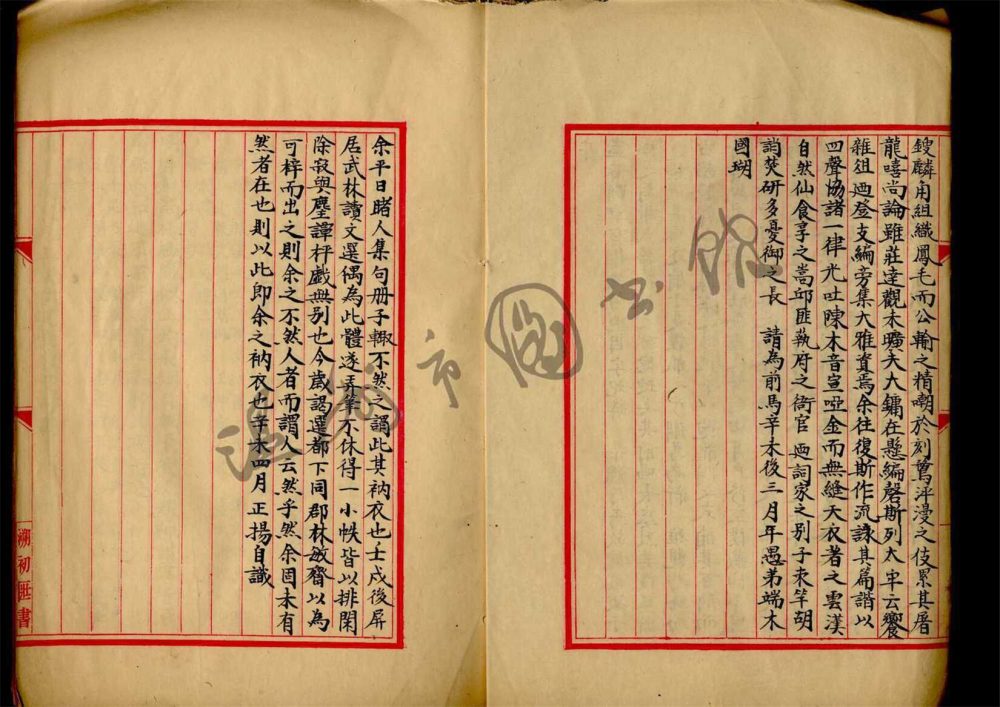 鎪麟角組織鳳毛而公輸之精嘲於刻蔦泙漫之伎累其屠
龍嘻尚論雖莊達觀未曠夫大鏞在懸編磬斯列太牢云饗
雜俎迺登支編旁集大雅資焉余往復斯作流詠其篇諧以
四聲協諸一律光吐陳木音宣啞金而無縫天衣者之雲漢
自然仙食享之嵩邱匪執府之衙官迺詞家之別子末竿胡
誚焚研多憂御之長 請為前馬辛未後三月年愚弟端木
國瑚
余平日睹人集句册子輒不然之謂此其衲衣也壬戌後屏
居武林讀文選偶為此體遂弄筆不休得一小帙皆以排閑
除寂與麈譚枰戲無別也今歲謁選都下同郡林敏齋以為
可梓而出之則余之不然人者而謂人云然乎然余固未有
然者在也則以此即余之衲衣也辛未四月 正揚自識
溯初匨書
溫州市圖书館